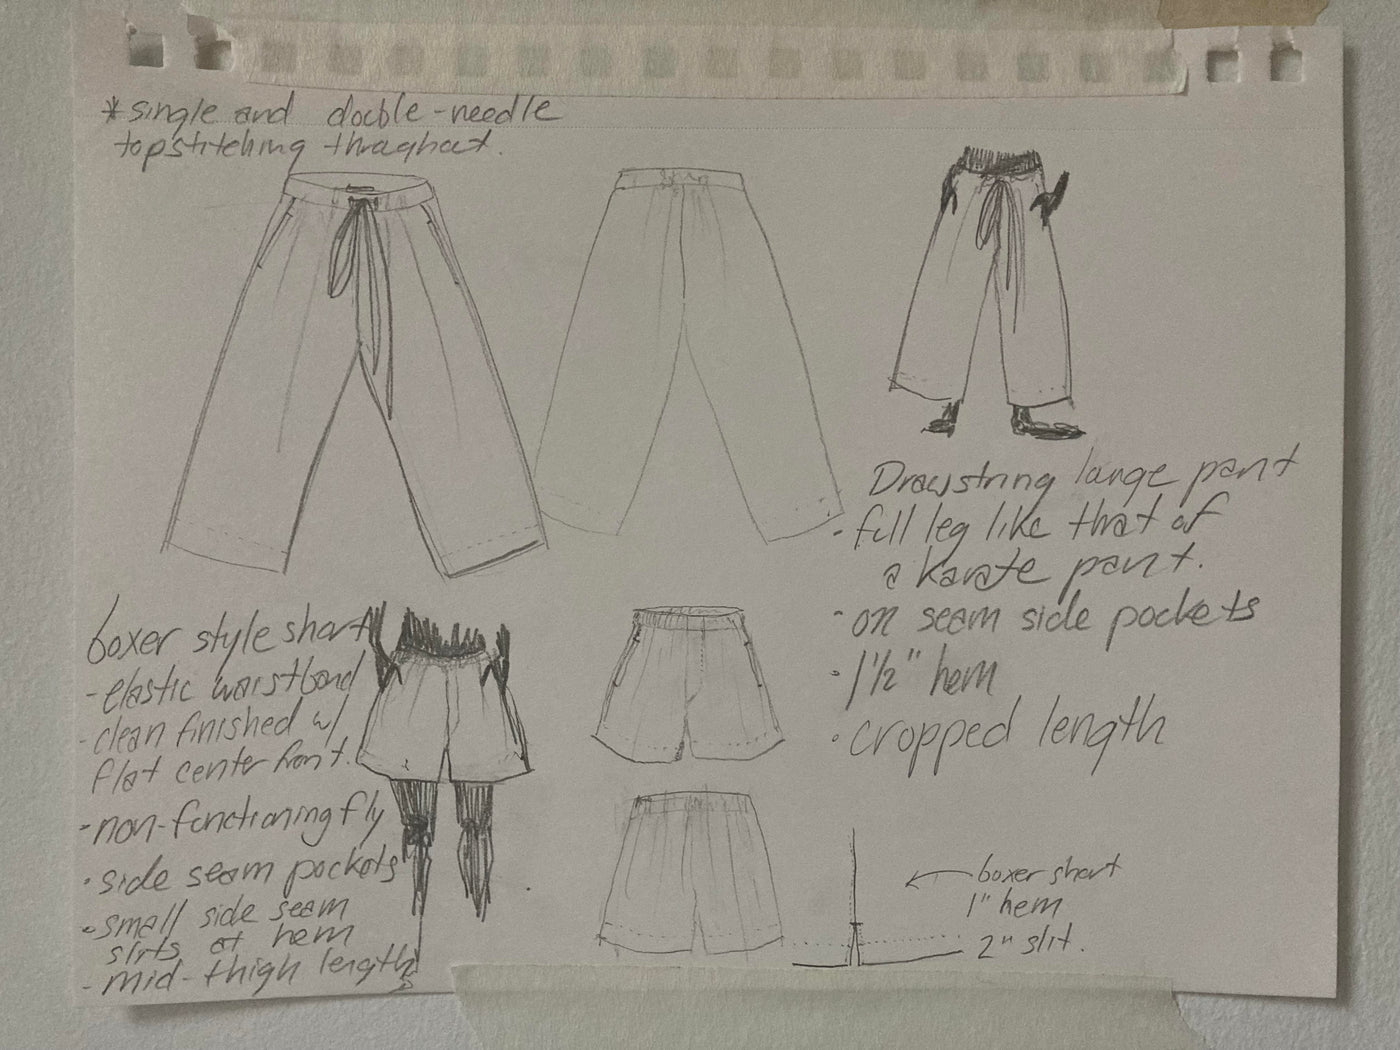 *single and double-needle
topstitching throughout.
Drawstring lounge pant
- full leg like that of
a karate pant.
- on seam side pockets
- 1 1/2" hem
- cropped length
boxer style short
- elastic waistband
- clean finished w/
flat center front.
- non-functioning fly
- side seam pockets
- small side seam
slits at hem
- mid-thigh length
boxer short
1" hem
2" slit.